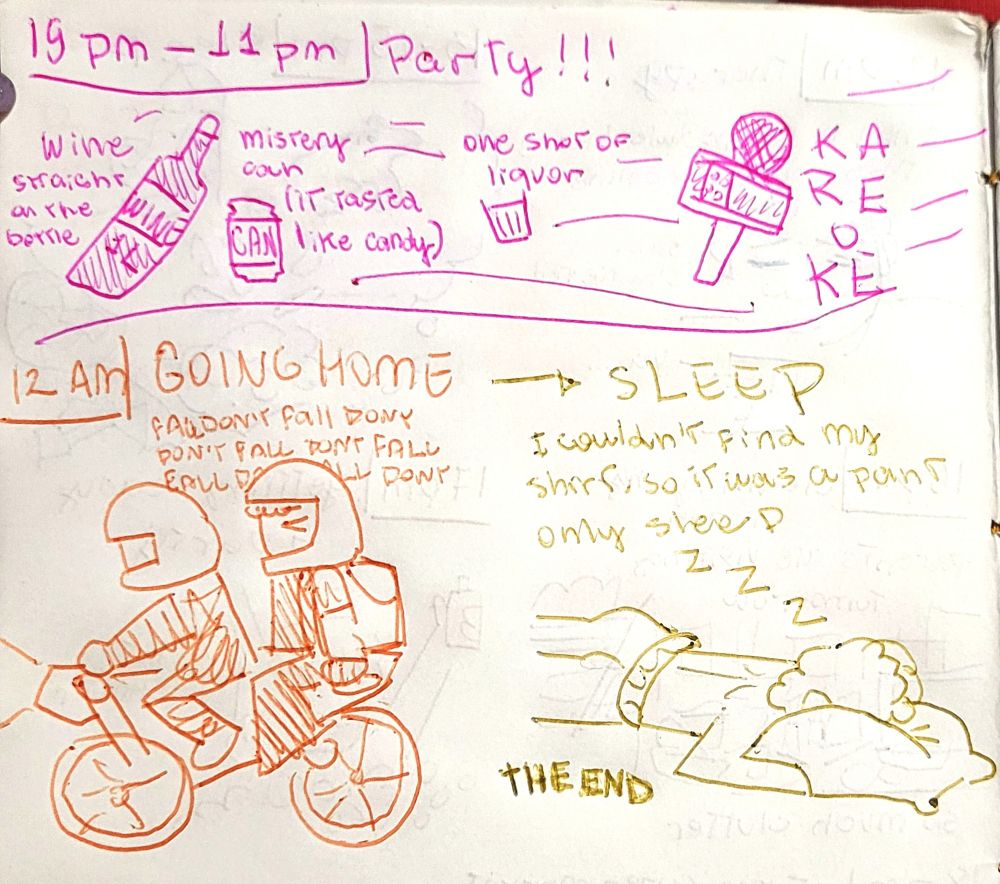 19 pm - 11 pm | Party!!!
wine
straight
on the
bottle
WINE
mistery
can
(it tasted
like candy)
CAN
one shot of
liquor
KA
RE
O
KE
12 AM
GOING HOME
FALL DON'T fall DONT
DON'T FALL DONT FALL
FALL DO ALL DONT
→ SLEEP
I couldn't find my
short, so it was a pant
only sleep
Z Z Z
THE END
so much clutter